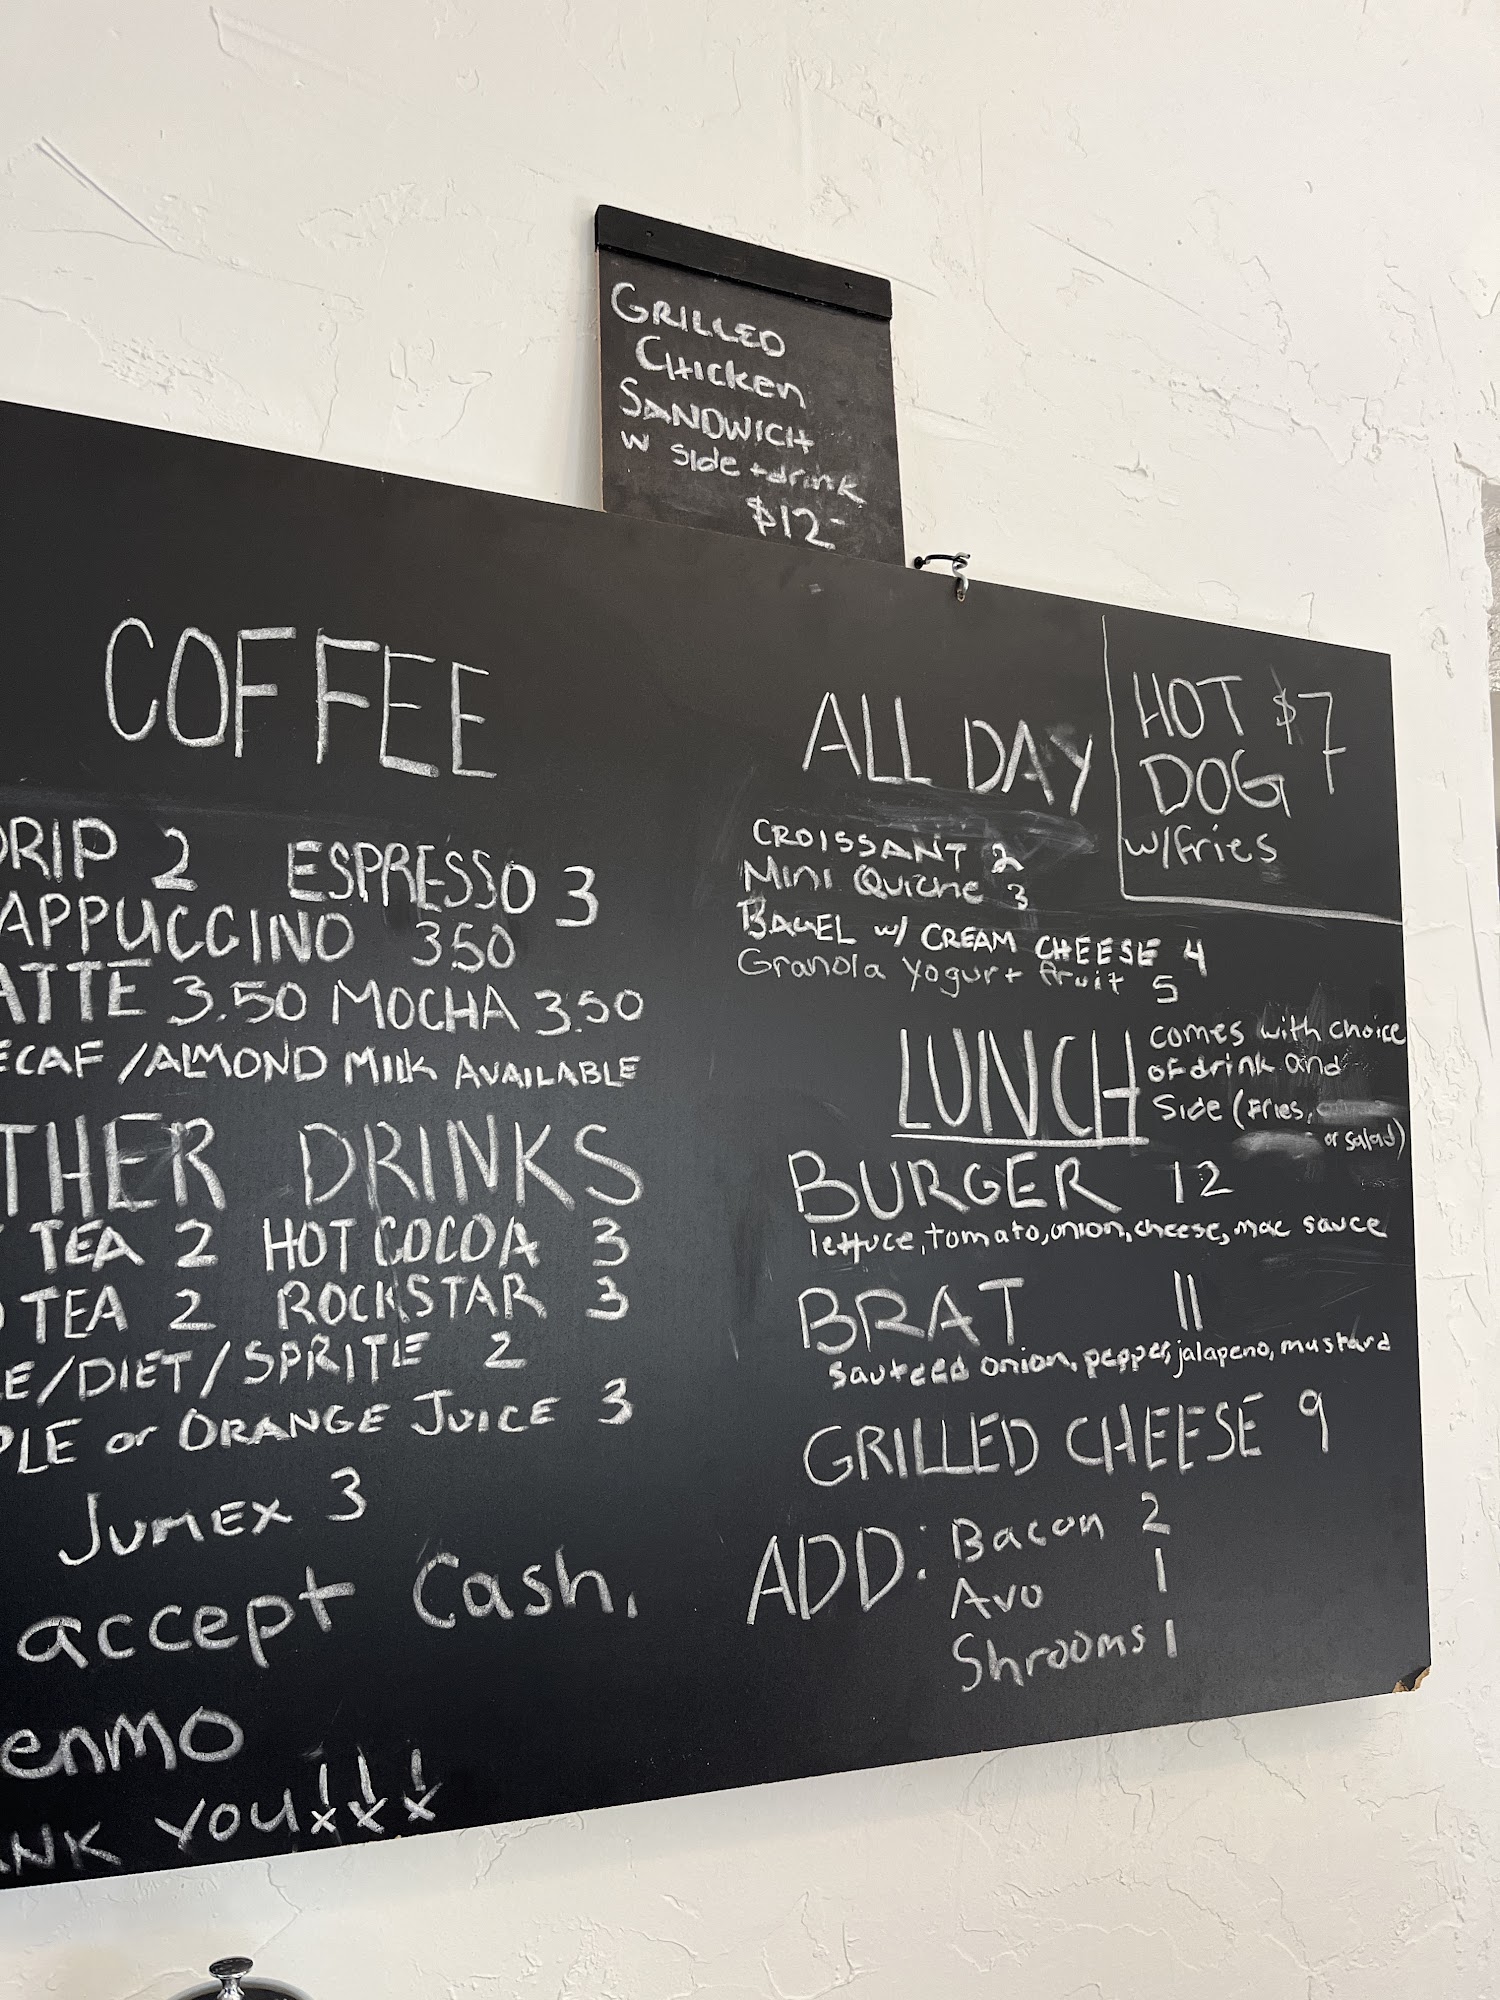 GRILLED
CHICKEN
SANDWICH
W side + drink
$12-
COFFEE
DRIP 2 ESPRESSO 3
APPUCCINO 350
ATTE 3.50 MOCHA 3.50
ECAF/ALMOND MILK AVAILABLE
THER DRINKS
TEA 2 HOT COCOA 3
TEA 2 ROCKSTAR 3
E/DIET/SPRITE 2
PLE or ORANGE JUICE 3
JUMEX 3
accept Cash,
enmo
ANK YOU!!!
ALL DAY
CROISSANT 2
MINI QUICHE 3
BAGEL w/ CREAM CHEESE 4
Granola yogurt fruit 5
HOT $7
DOG
w/Fries
LUNCH comes with choice
of drink and
Side (Fries,
or salad)
BURGER 12
lettuce, tomato, onion, cheese, mac sauce
BRAT 11
sauteed onion, pepper, jalapeno, mustard
GRILLED CHEESE 9
ADD: Bacon 2
Avo 1
Shrooms 1